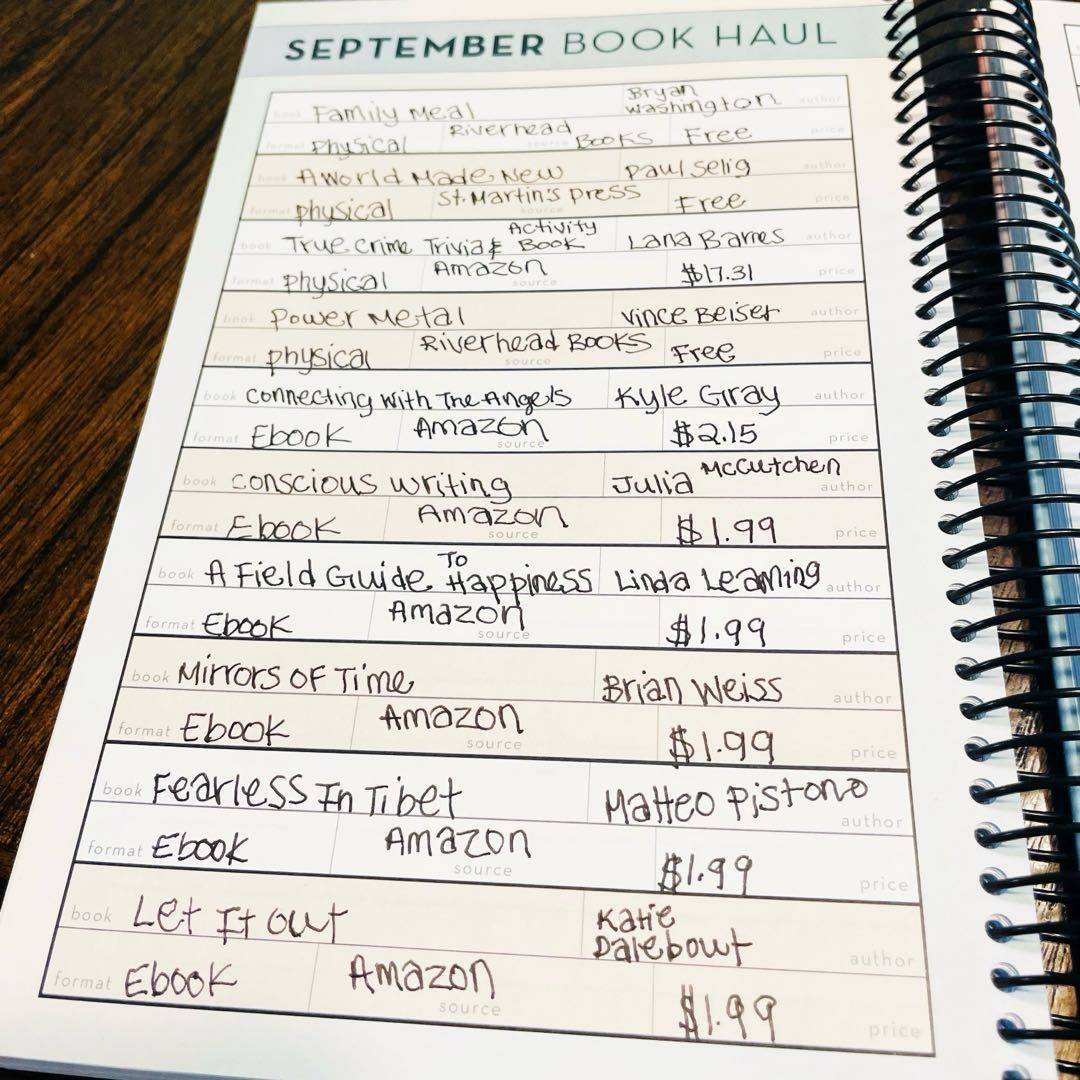 SEPTEMBER BOOK HAUL
book Family Meal Bryan Washington author
format Physical Riverhead Books source Free price
book A World Made New Paul Selig author
format physical St. Martin's Press source Free price
book True Crime Trivia & Activity Book Lana Barnes author
format physical Amazon source $17.31 price
book Power Metal Vince Beiser author
format physical Riverhead Books source Free price
book Connecting With The Angels Kyle Gray author
format Ebook Amazon source $2.15 price
book Conscious Writing Julia McCutchen author
format Ebook Amazon source $1.99 price
book A Field Guide To Happiness Linda Leaming author
format Ebook Amazon source $1.99 price
book Mirrors Of Time Brian Weiss author
format Ebook Amazon source $1.99 price
book Fearless In Tibet Matteo Pistono author
format Ebook Amazon source $1.99 price
book Let It Out Katie Dalebout author
format Ebook Amazon source $1.99 price